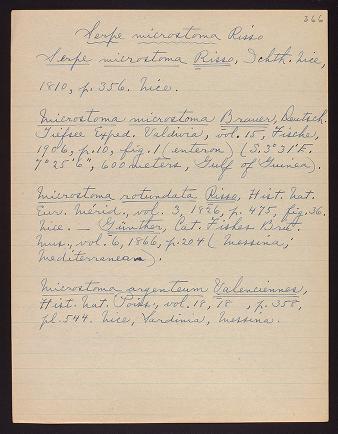 366
Serpe microstoma Risso
Serpe microstoma Risso, Ichth. Nice,
1810, p. 356. Nice.
Microstoma microstoma Brauer, Deutsch.
Tiefsee Exped. Valdivia, vol. 15, Fische,
1906, p. 10, fig. 1 (enteron) (S. 3° 31' E.
7° 25' 6", 600 meters, Gulf of Guinea).
Microstoma rotundata Risso, Hist. Nat.
Eur. Mérid., vol. 3, 1826, p. 475, fig. 36.
Nice. — Günther, Cat. Fishes Brit.
Mus., vol. 6, 1866, p. 204 (Messina;
Mediterranean).
Microstoma argenteum Valenciennes,
Hist. Nat. Poiss., vol. 18, 18 , p. 358,
pl. 544. Nice, Sardinia, Messina.